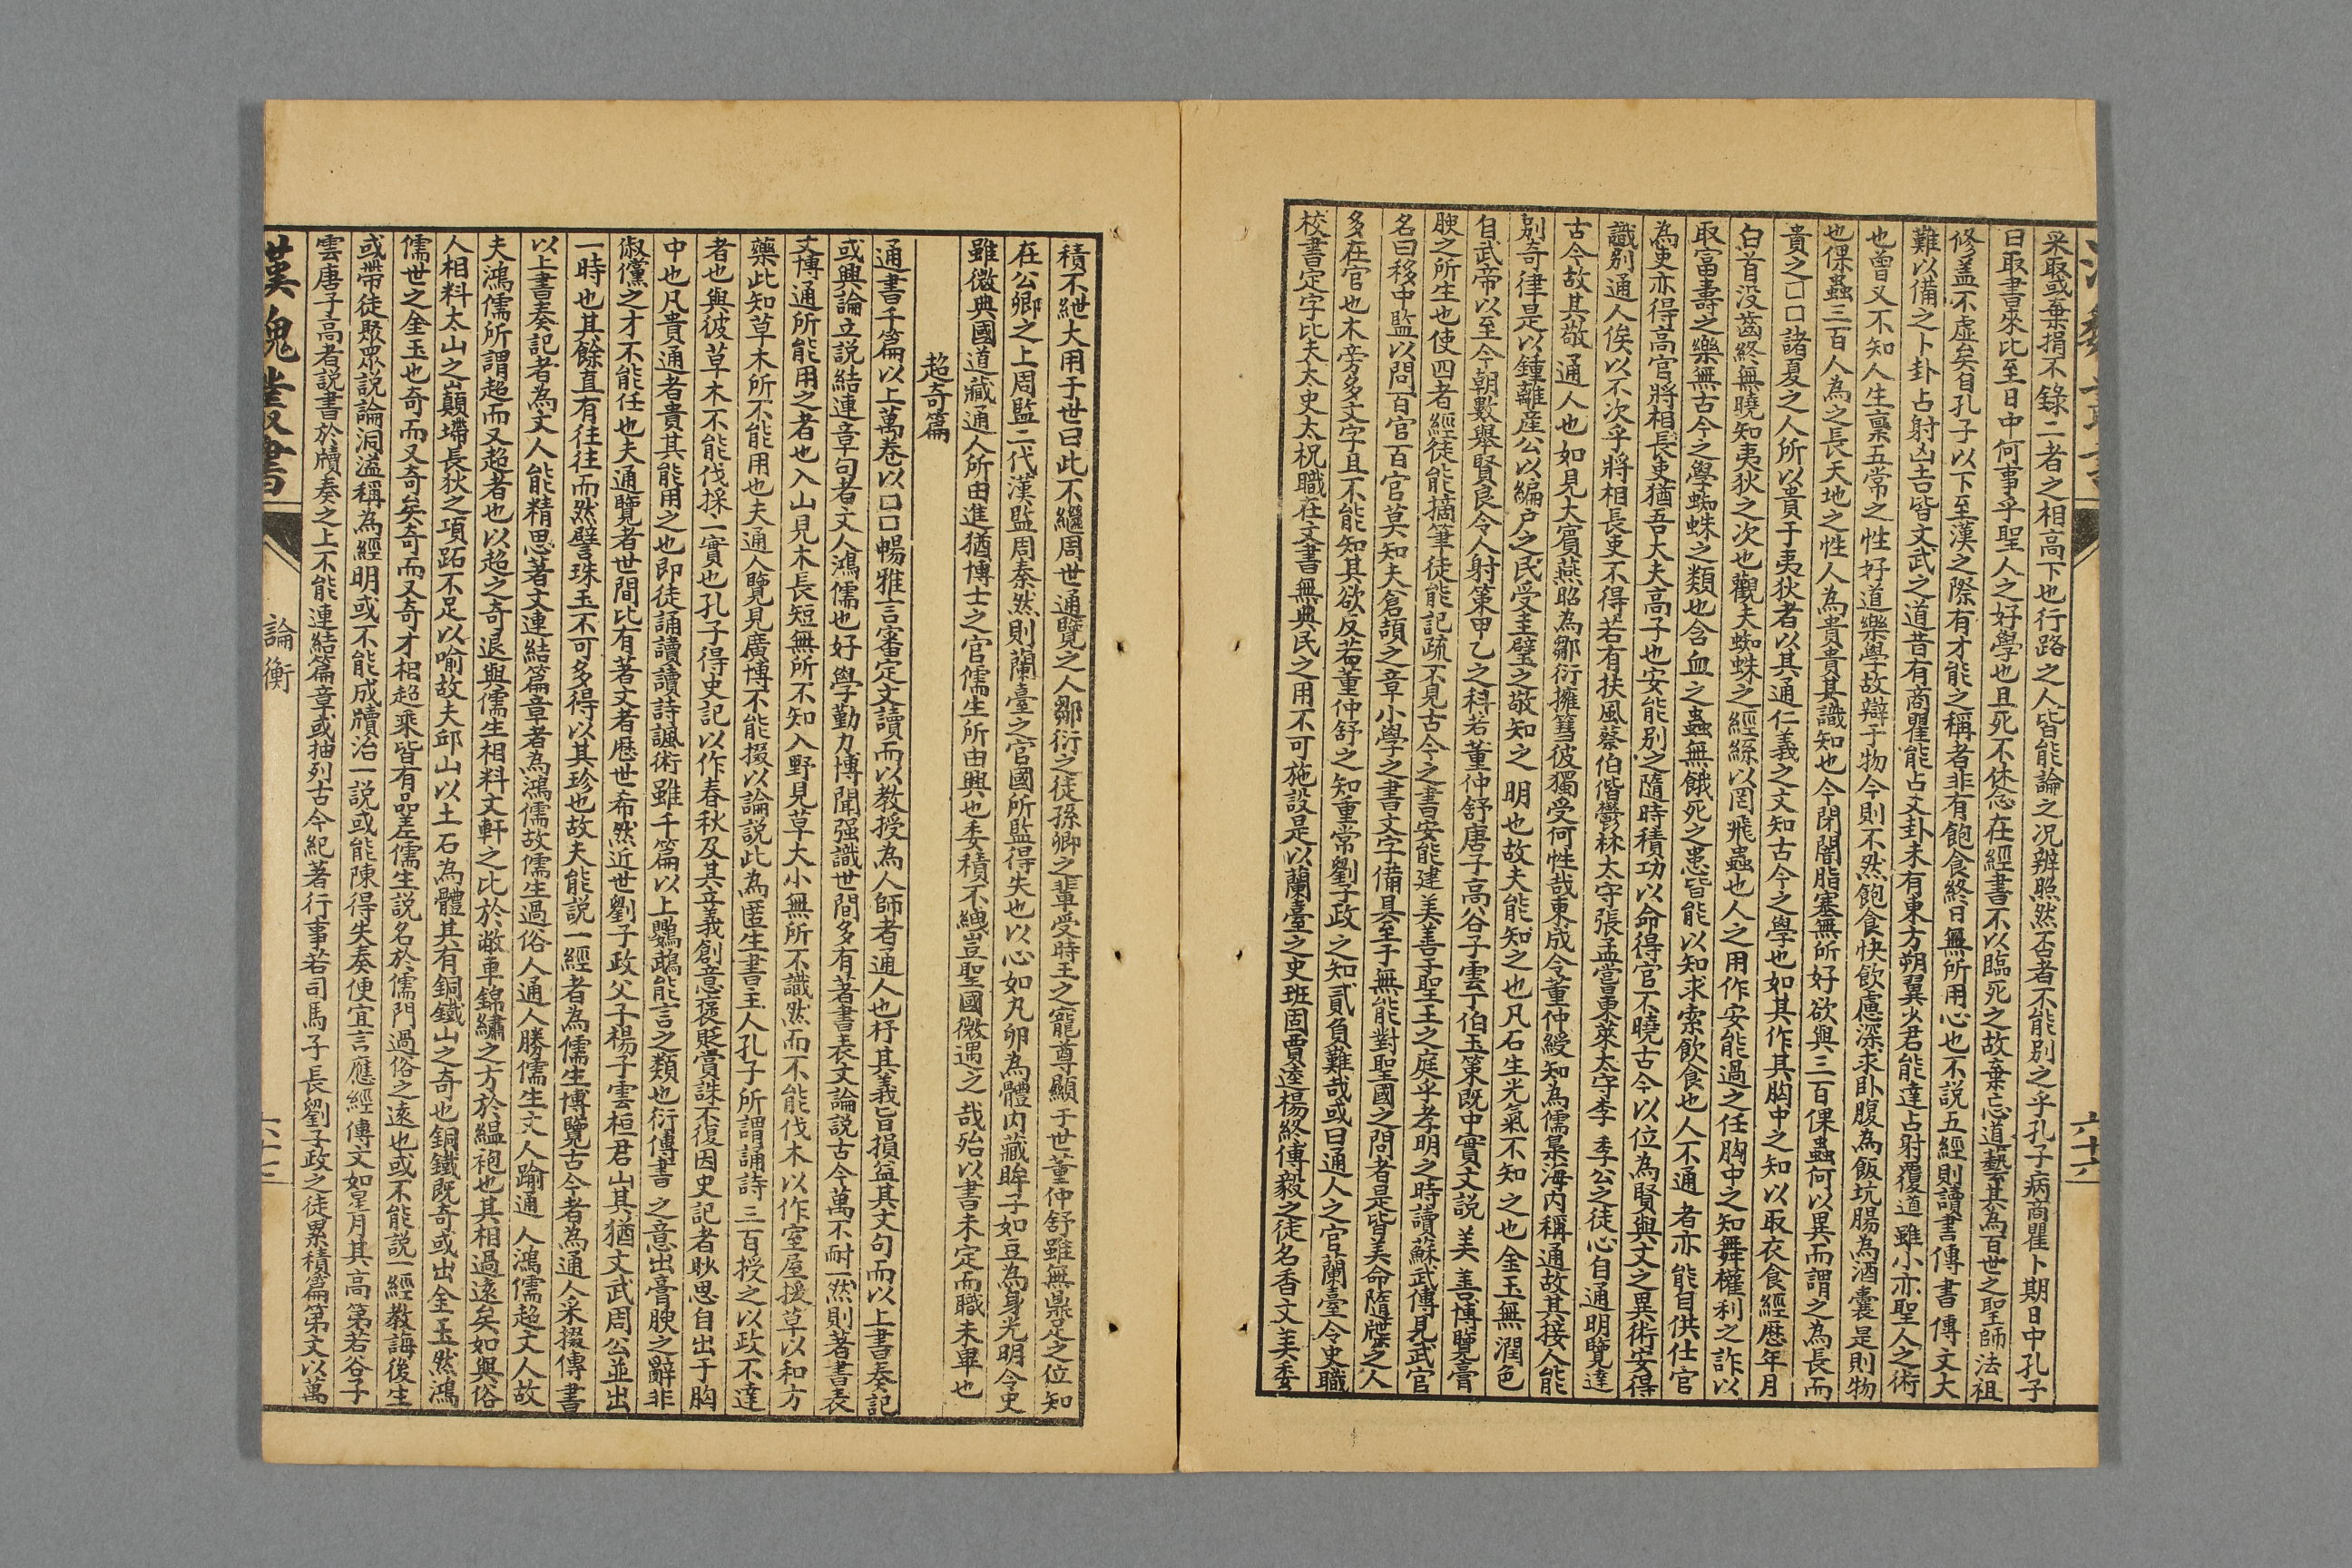 采取或棄捐不錄二者之相高下也行路之人皆能論之况辨照然否者不能別之乎孔子病商瞿卜期日中孔子
曰取書來比至日中何事乎聖人之好學也且死不休念在經書不以臨死之故棄忘道藝其為百世之聖師法祖
修盖不虛矣自孔子以下至漢之際有才能之稱者非有飽食終日無所用心也不說五經則讀書傳書傳文大
難以備之卜卦占射凶吉皆文武之道昔有商瞿能占文卦未有東方朔翼少君能達占射覆道雖小亦聖人之術
也曾又不知人生禀五常之性好道樂學故辯于物今則不然飽食快飲慮深求卧腹為飯坑腸為酒囊是則物
也倮蟲三百人為之長天地之性人為貴貴其識知也今閉闇脂塞無所好欲與三百倮蟲何以異而謂之為長而
貴之□□諸夏之人所以貴于夷狄者以其通仁義之文知古今之學也如其作其胸中之知以取衣食經歷年月
白首沒齒終無曉知夷狄之次也觀夫蜘蛛之經絲以罔飛蟲也人之用作安能過之任胸中之知舞權利之詐以
取富壽之樂無古今之學蜘蛛之類也含血之蟲無餓死之患皆能以知求索飲食也人不通者亦能自供仕官
為吏亦得高官將相長吏猶吾大夫高子也安能別之隨時積功以命得官不曉古今以位為賢與文之異術安得
識別通人俟以不次乎將相長吏不得若有扶風蔡伯偕鬱林太守張孟嘗東萊太守李季公之徒心自通明覽達
古今故其敬通人也如見大賓燕昭為鄒衍擁篲彼獨受何性哉東成令董仲綬知為儒梟海内稱通故其接人能
別奇律是以鍾離産公以編户之民受圭璧之敬知之明也故夫能知之也凡石生光氣不知之也金玉無潤色
自武帝以至今朝數舉賢良令人射策甲乙之科若董仲舒唐子高谷子雲丁伯玉策既中實文説美善博覽膏
腴之所生也使四者經徒能摘筆徒能記疏不見古今之書安能建美善于聖王之庭乎孝明之時讀蘇武傳見武官
名曰栘中監以問百官百官莫知夫倉頡之章小學之書文字備具至于無能對聖國之問者是皆美命隨牒之人
多在官也木旁多文字且不能知其欲及若董仲舒之知重常劉子政之知貳負難哉或曰通人之官蘭臺令史職
校書定字比夫太史太祝職在文書無典民之用不可施設是以蘭臺之史班固賈逵楊終傅毅之徒名香文美委
積不紲大用于世曰此不繼周世通覽之人鄒衍之徒孫卿之輩受時王之寵尊顯于世董仲舒雖無鼎足之位知
在公卿之上周監二代漢監周秦然則蘭臺之官國所監得失也以心如丸卵為體内藏眸子如豆為身光明令史
雖微典國道藏通人所由進猶博士之官儒生所由興也委積不紲豈聖國微遇之哉殆以書未定而職未畢也
超奇篇
通書千篇以上萬卷以□□暢雅言審定文讀而以教授為人師者通人也杼其義旨損益其文句而以上書奏記
或興論立説結連章句者文人鴻儒也好學勤力博聞强識世間多有著書表文論説古今萬不耐一然則著書表
文博通所能用之者也入山見木長短無所不知入野見草大小無所不識然而不能伐木以作室屋援草以和方
藥此知草木所不能用也夫通人覽見廣博不能掇以論説此為匿生書主人孔子所謂誦詩三百授之以政不達
者也與彼草木不能伐採一實也孔子得史記以作春秋及其立義創意褒貶賞誅不復因史記者眇思自出于胸
中也凡貴通者貴其能用之也即徒誦讀讀詩諷術雖千篇以上鸚鵡能言之類也衍傳書之意出膏腴之辭非
俶儻之才不能任也夫通覽者世間比有著文者歷世希然近世劉子政父子楊子雲桓君山其猶文武周公並出
一時也其餘直有往往而然譬珠玉不可多得以其珍也故夫能説一經者為儒生博覽古今者為通人采掇傳書
以上書奏記者為文人能精思著文連結篇章者為鴻儒故儒生過俗人通人勝儒生文人踰通人鴻儒超文人故
夫鴻儒所謂超而又超者也以超之奇退與儒生相料文軒之比於敝車錦繡之方於緼袍也其相過遠矣如與俗
人相料太山之巔墆長狄之項跖不足以喻故夫邱山以土石為體其有銅鐵山之奇也銅鐵既奇或出金玉然鴻
儒世之金玉也奇而又奇矣奇而又奇才相超乘皆有品差儒生説名於儒門過俗之遠也或不能説一經教誨後生
或帶徒聚眾説論洞溢稱為經明或不能成牘治一説或能陳得失奏便宜言應經傳文如星月其高第若谷子
雲唐子高者説書於牘奏之上不能連結篇章或抽列古今紀著行事若司馬子長劉子政之徒累積篇第文以萬
漢魏叢書
論衡